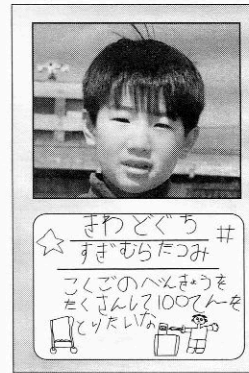 さわどぐち
すぎむらたつみ
こくごのべんきょうを
たくさんして100てんを
とりたいな